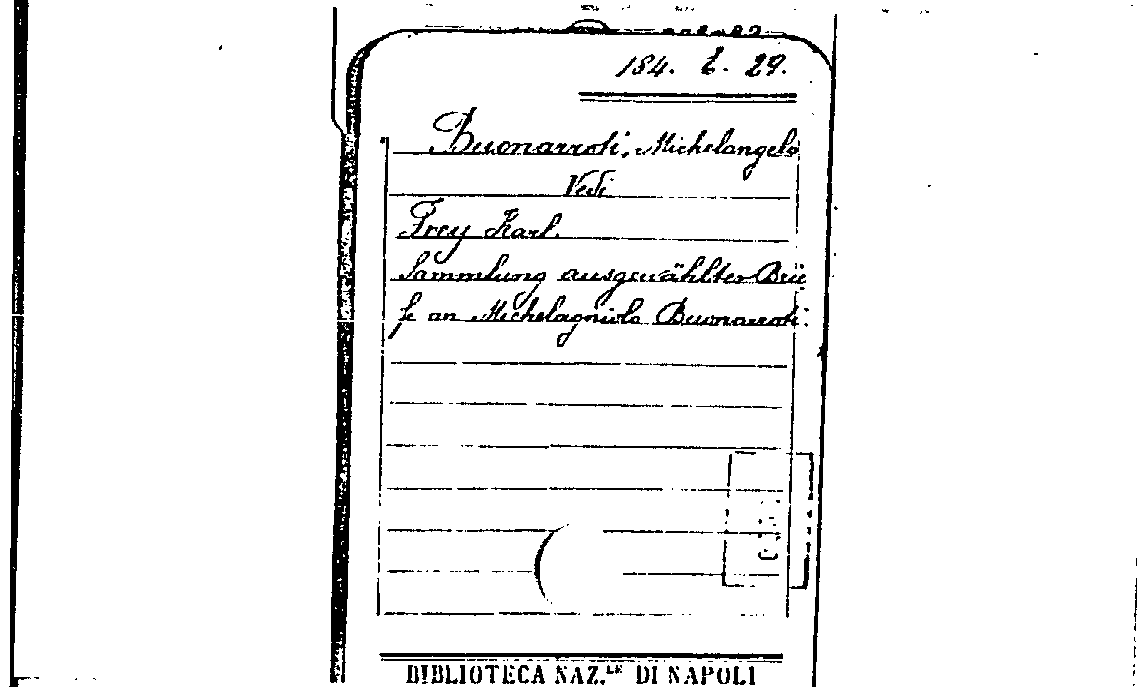 184. E. 29.
Buonarroti, Michelangelo
Vedi
Frey Karl.
Sammlung ausgewählter Brie
fe an Michelagniolo Buonarroti.
BIBLIOTECA NAZ.LE DI NAPOLI